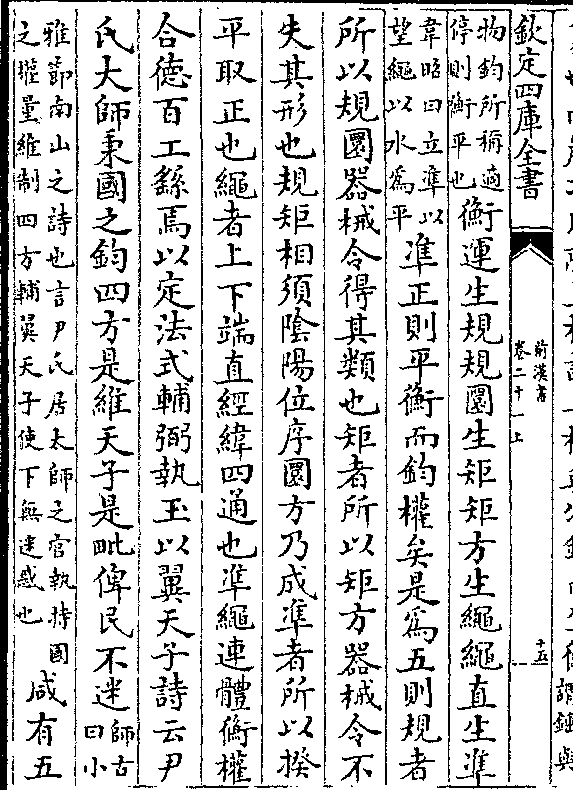 欽定四庫全書
前漢書
卷二十一上
十五
物鈞所稱適
停則衡平也
衡運生規規圜生矩矩方生繩繩直生準
韋昭曰立準以
望繩以水為平
準正則平衡而鈞權矣是為五則規者
所以規圜器械令得其類也矩者所以矩方器械令不
失其形也規矩相須陰陽位序圜方乃成準者所以揆
平取正也繩者上下端直經緯四通也準繩連體衡權
合德百工繇焉以定法式輔弼執玉以翼天子詩云尹
氏大師秉國之鈞四方是維天子是毗俾民不迷
師古
曰小
雅節南山之詩也言尹氏居太師之官執持國
之權量維制四方輔翼天子使下無迷惑也
咸有五